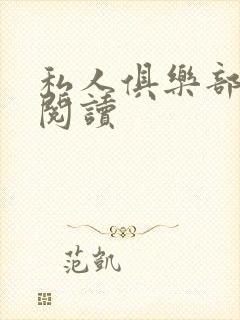 私人俱樂部
閱讀
范凱